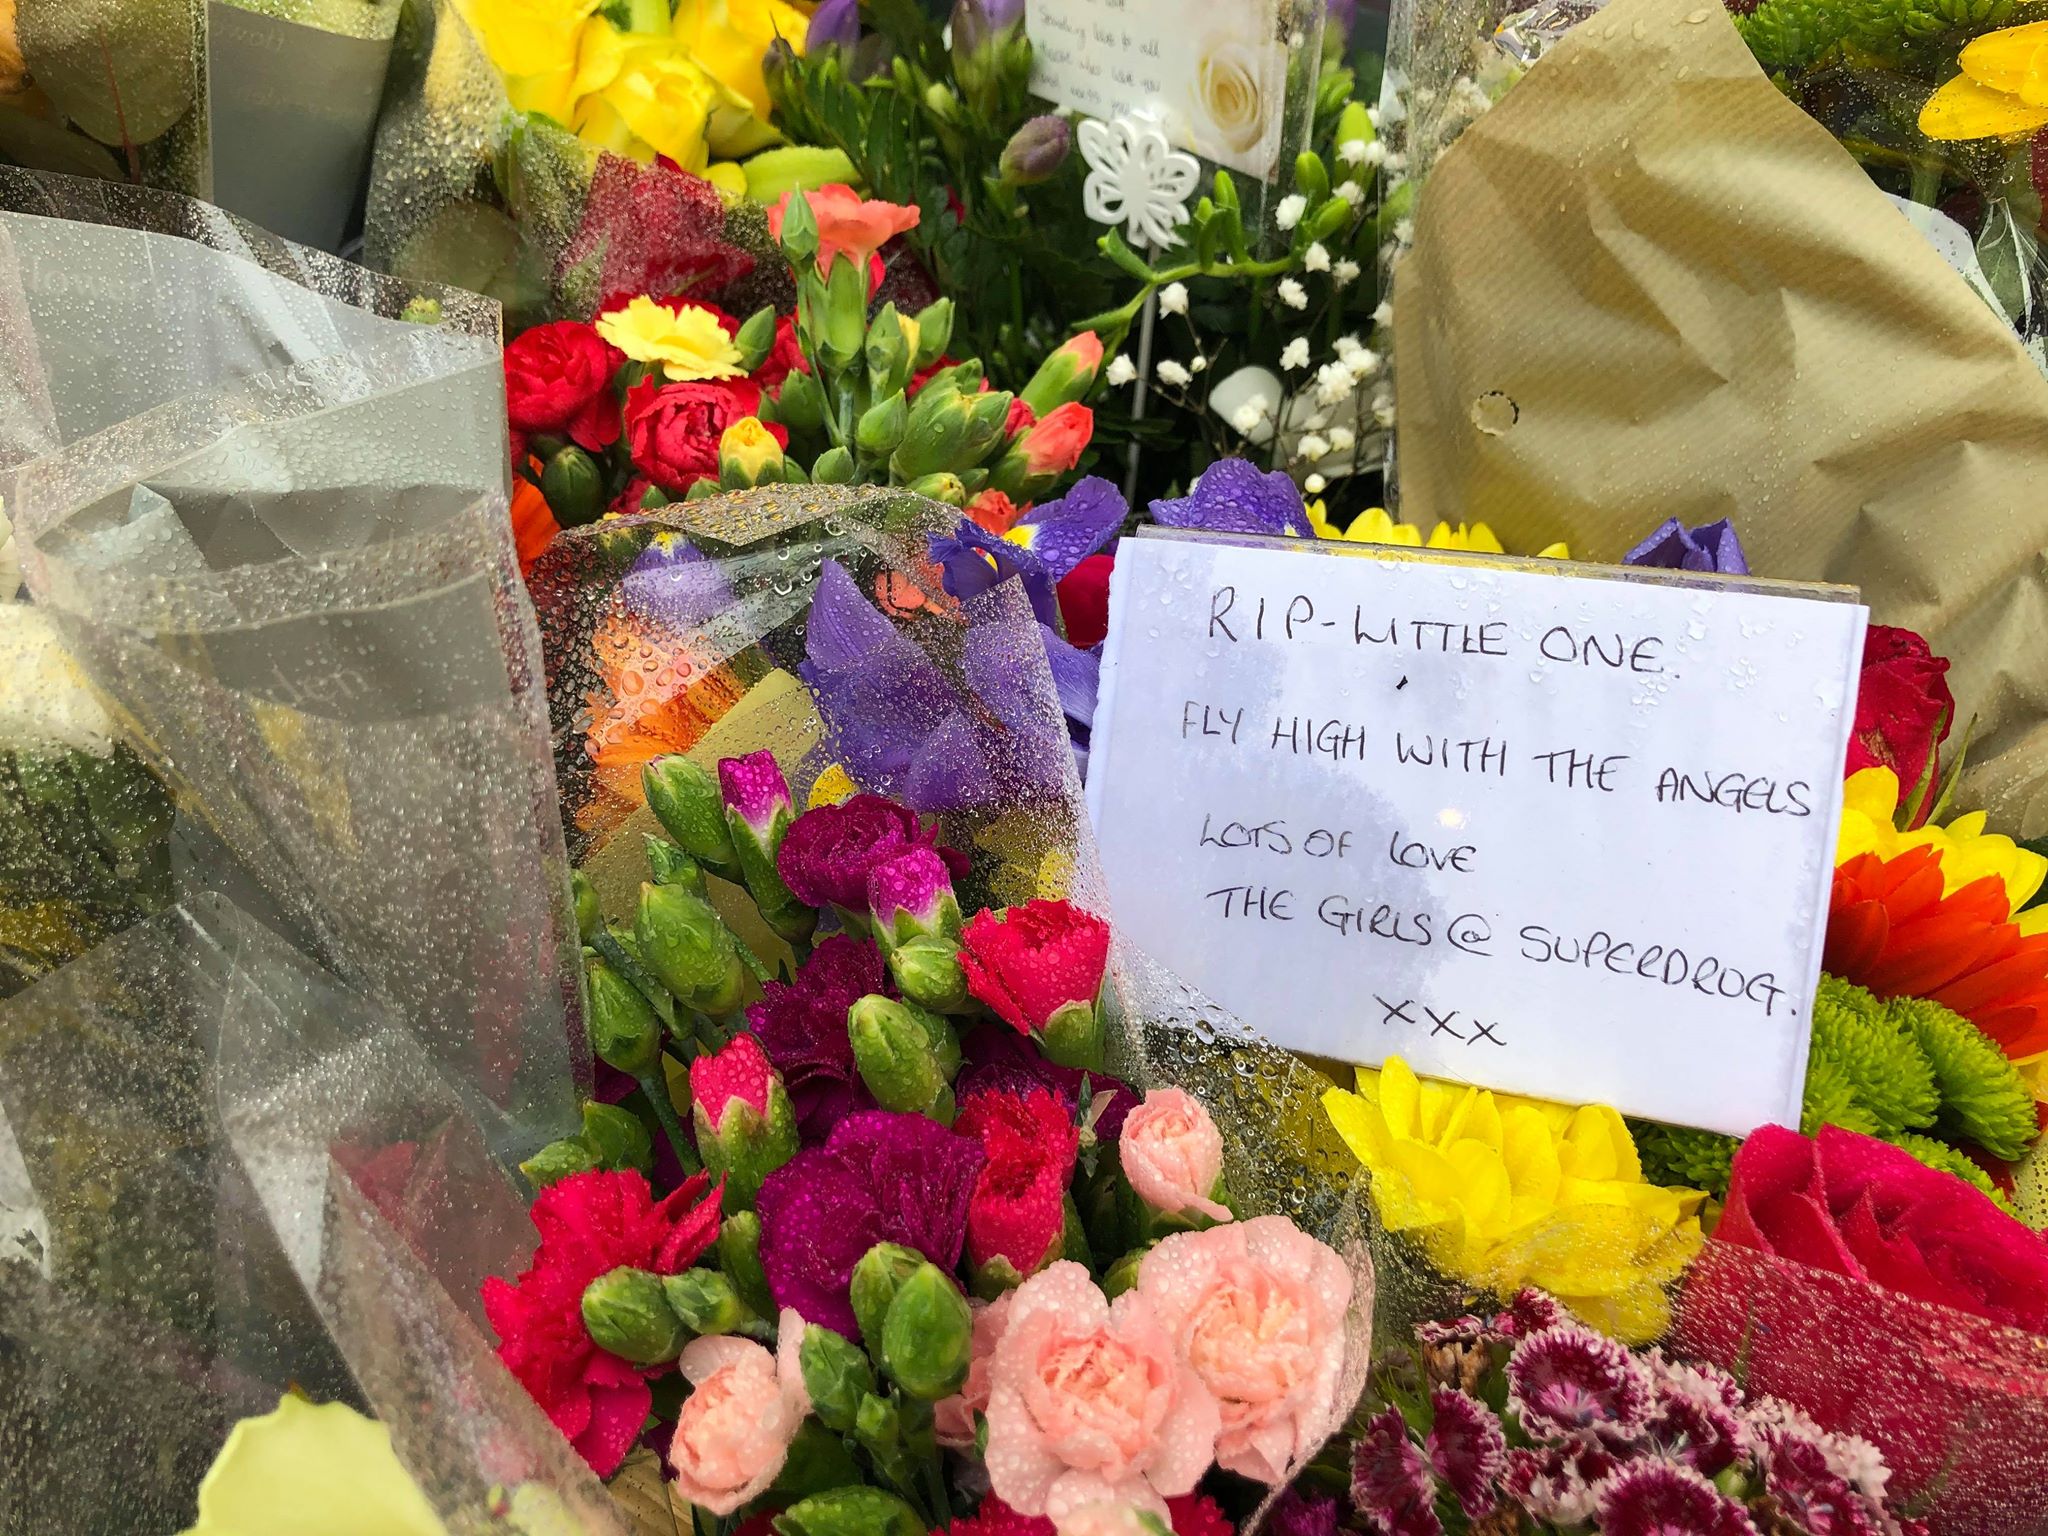 Sending love to all
those who love you
and miss you
RIP-LITTLE ONE.
FLY HIGH WITH THE ANGELS
LOTS OF LOVE
THE GIRLS @ SUPERDRUG.
XXX